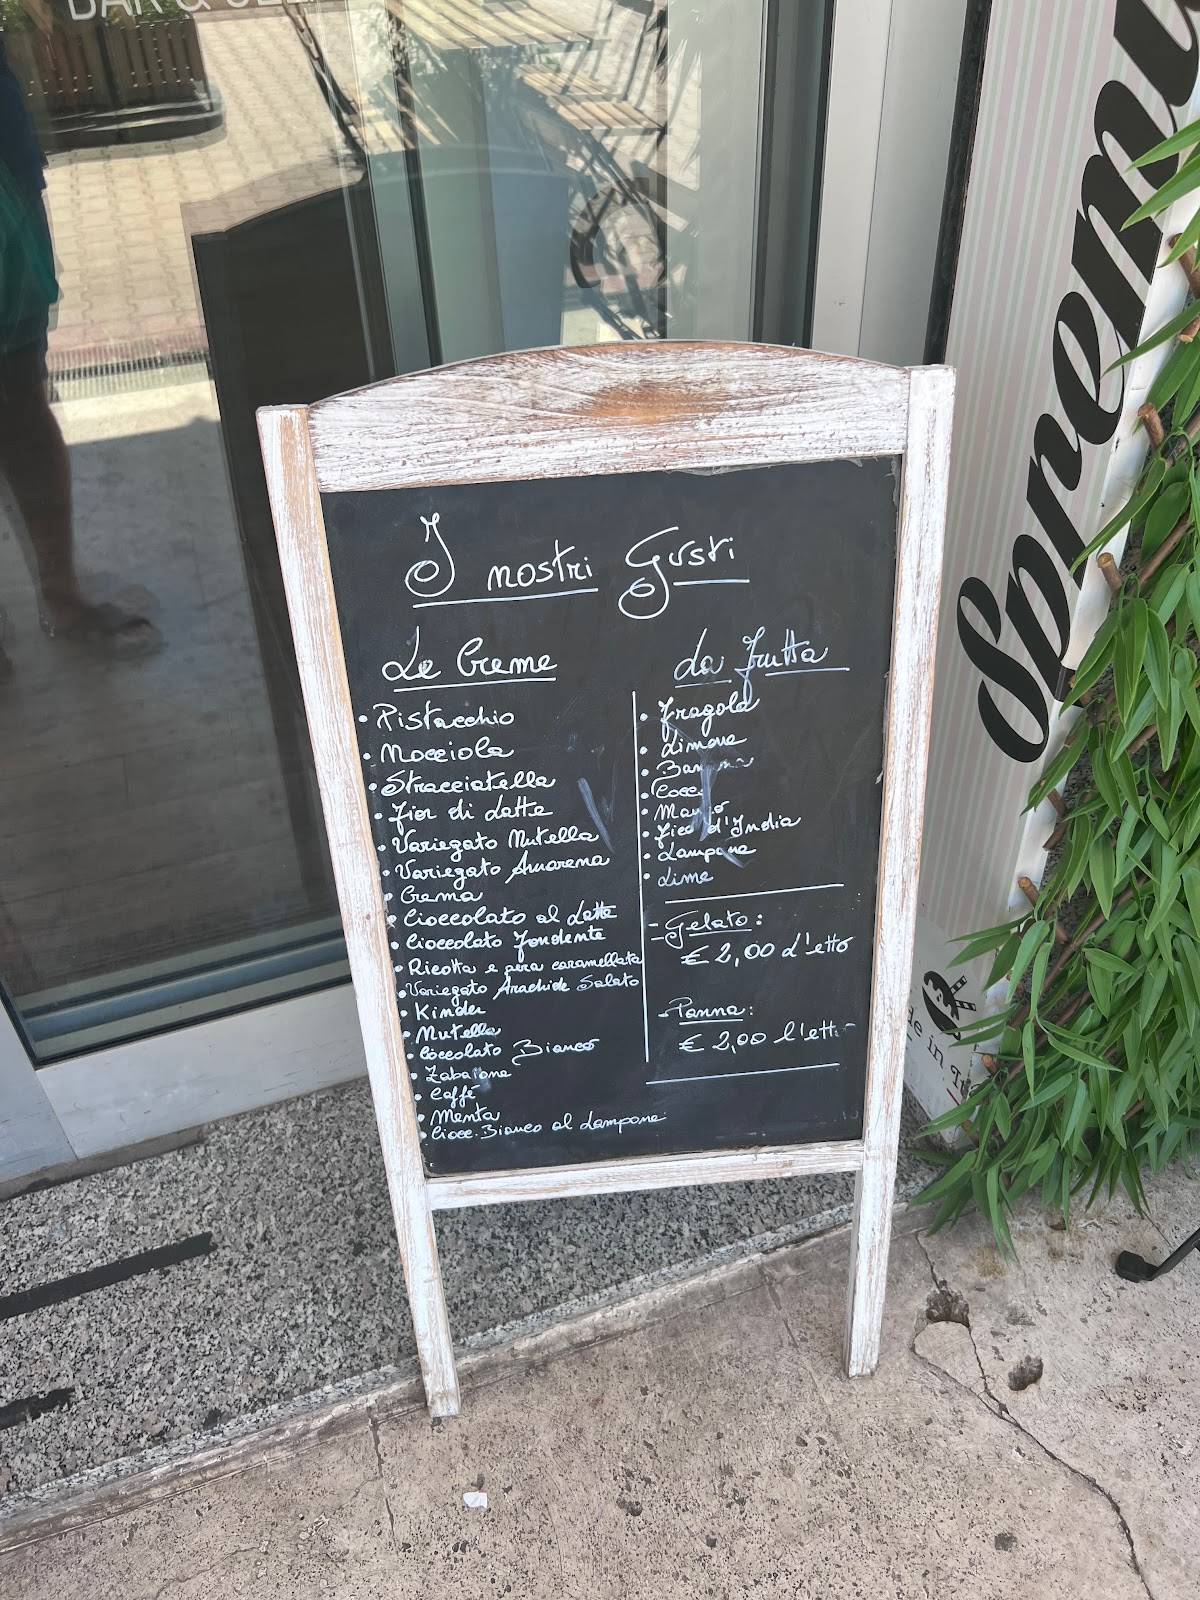 BAR &
Spremu
I nostri Gusti
Le Creme
• Pistacchio
• Nocciola
• Stracciatella
• Fior di Latte
• Variegato Nutella
• Variegato Amarena
• Crema
• Cioccolato al Latte
• Cioccolato Fondente
• Ricotta e pera caramellata
• Variegato Arachide Salato
• Kinder
• Nutella
• Cioccolato Bianco
• Zabaione
• Caffé
• Menta
• Ciocc. Bianco al Lampone
da frutta
• Fragola
• Limone
• Banana
• Cocco
• Mango
• Fico d'India
• Lampone
• Lime
- Gelato:
€ 2,00 l'etto
- Panna:
€ 2,00 l'etto
de in